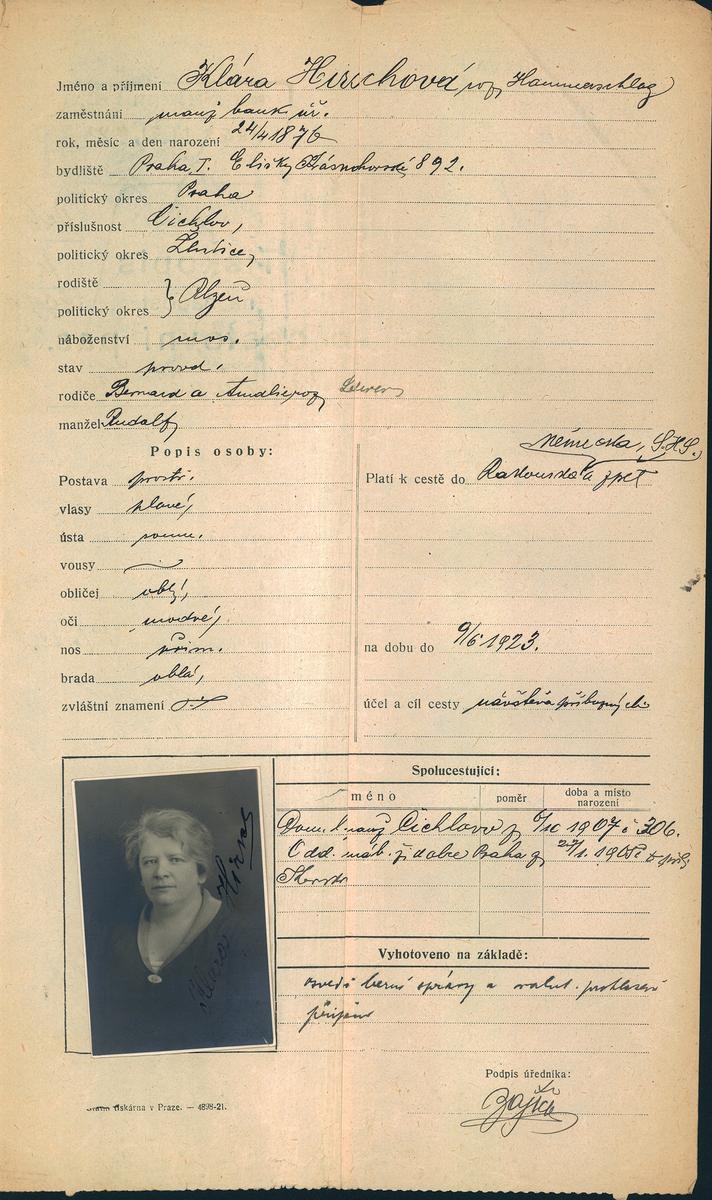 Jméno a příjmení Klára Hirschová roz. Hammerschlag
zaměstnání manž. bank. úř.
rok, měsíc a den narození 24/4 1876
bydliště Praha I. Elišky Krásnohorské 892.
politický okres Praha
příslušnost Čichlov,
politický okres Žlutice,
rodiště
politický okres } Plzeň
náboženství mos.
stav provd.
rodiče Bernard a Amalie roz.
manžel Rudolf
Popis osoby:
Postava prostř.
vlasy plavé,
ústa soum.
vousy
obličej oblý,
oči modré,
nos přím.
brada oblá,
zvláštní znamení
Německa, S.H.S.
Platí k cestě do Rakouska a zpět
na dobu do 9/6 1923.
účel a cíl cesty návštěva příbuzných
Spolucestující:
méno poměr doba a místo narození
Dom. Čichlov z 1907 č 306.
Odd. mat. židobce Praha z 1905
Vyhotoveno na základě:
osvěd. berní správy a valut. prohlášení
Klara Hirsch
Podpis úředníka:
tiskárna v Praze. — 4898-21.